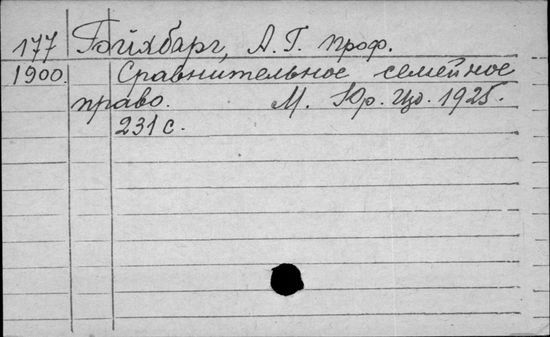 177 Гойхбарг, А. Г. проф.
1900. Сравнительное семейное
право. М. Юр. Изд. 1925.
231 с.